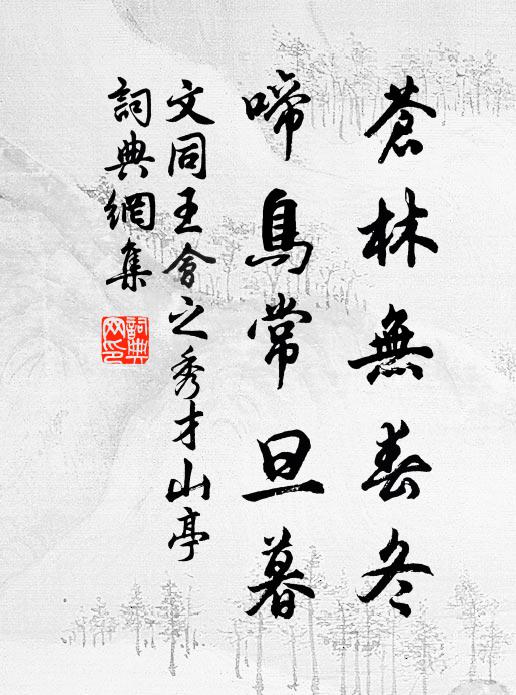 蒼林無春冬
啼鳥常旦暮
文同王會之秀才山亭
詞典網集
詞典網印